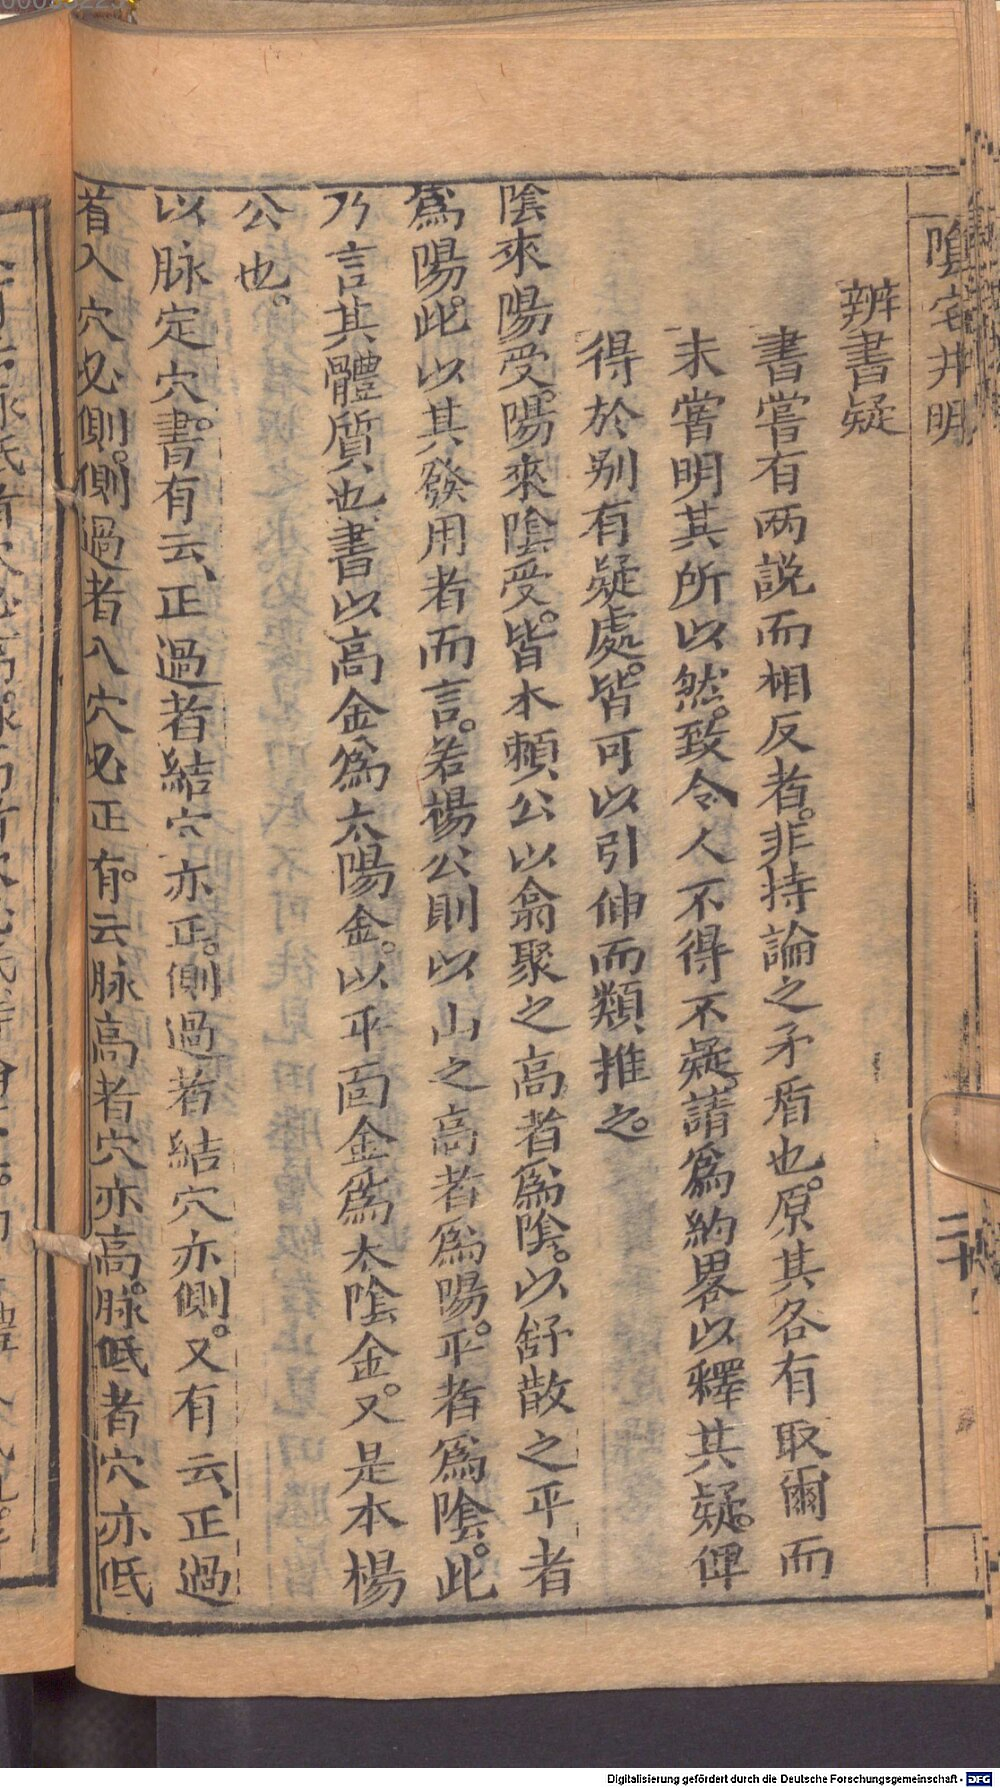 陰宅井明
二十
辨書疑
書嘗有两説而相反者。非持論之矛盾也。原其各有取爾而
未嘗明其所以然。致令人不得不疑。請為約畧以釋其疑。俾
得於别有疑處。皆可以引伸而類推之。
陰來陽受。陽來陰受。皆本賴公以翕聚之高者為陰。以舒散之平者
為陽。此以其發用者而言。若楊公則以山之高者為陽。平者為陰。此
乃言其體質也書以高金為太陽金。以平面金為太陰金。又是本楊
公也。
以脉定穴。書有云、正過者結穴亦正。側過者結穴亦側。又有云、正過
者入穴必側。側過者入穴必正。有云脉高者穴亦高。脉低者穴亦低
Digitalisierung gefördert durch die Deutsche Forschungsgemeinschaft - DFG